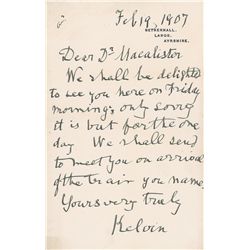 Feb 19, 1907
NETHERHALL,
LARGS,
AYRSHIRE.
Dear Dr Macalister
We shall be delighted
to see you here on Friday
morning; only sorry
it is but for the one
day We shall send
to meet you on arrival
of the train you name.
Yours very truly
Kelvin